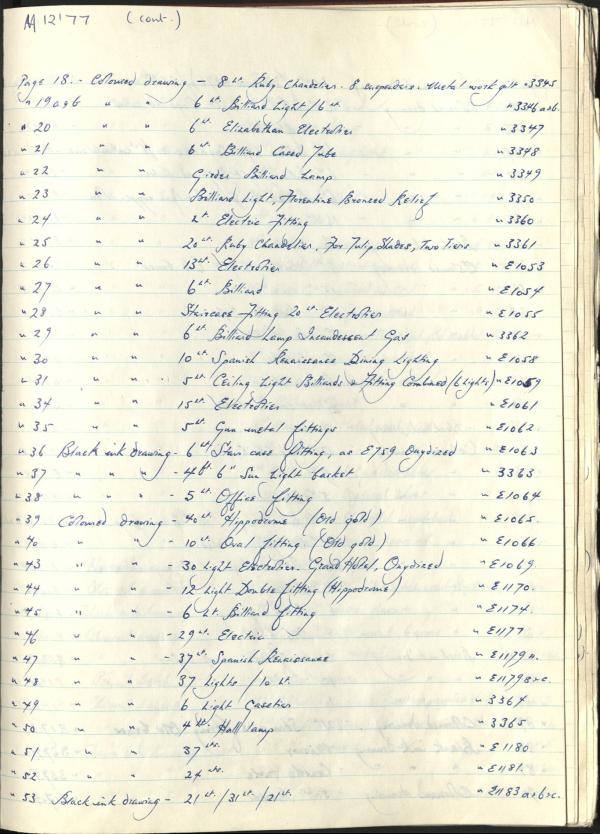 AA 12'77 (cont.)
Page 18. - Coloured drawing - 8 Lt. Ruby Chandelier. 8 suspenders. Metal work gilt " 3345
" 19 a&b " " 6 Lt. Billiard Light / 6 Lt. " 3346 a&b.
" 20 " " 6 Lt. Elizabethan Electrolier " 3347
" 21 " " 6 Lt. Billiard Cased Tube " 3348
" 22 " " Girder Billiard Lamp " 3349
" 23 " " Billiard Light, Florentine Bronced Relief " 3350
" 24 " " 2 Lt. Electric Fitting " 3360
" 25 " " 20 Lt. Ruby Chandelier. For Tulip Shades, Two Tiers " 3361
" 26 " " 13 Lt. Electrolier " E1053
" 27 " " 6 Lt. Billiard " E1054
" 28 " " Staircase Fitting 20 Lt. Electrolier " E1055
" 29 " " 6 Lt. Billiard Lamp Incandescent Gas " 3362
" 30 " " 10 Lt. Spanish Renaissance Dining Lighting " E1058
" 31 " " 5 Lt. Ceiling Light Billiards & Fitting Combined (6 Lights) " E1059
" 34 " " 15 Lt. Electrolier " E1061
" 35 " " 5 Lt. Gun metal fittings " E1062
" 36 Black ink drawing - 6 Lt. Stair case fitting, as E759 Oxydized " E1063
" 37 " " " - 4 6" Sun Light basket " 3363
" 38 " " " - 5 Lt. Office fitting " E1064
" 39 Coloured drawing - 40 Lt. Hippodrome (Old gold) " E1065.
" 40 " " - 10 Lt. Oval fitting (Old gold) " E1066
" 43 " " - 30 Light Electrolier. Grand Hotel, Oxydized " E1069.
" 44 " " - 12 Light Double fitting (Hippodrome) " E1170.
" 45 " " - 6 Lt. Billiard fitting " E1174.
" 46 " " - 29 Lt. Electric " E1177
" 47 " " - 37 Lt. Spanish Renaissance " E1179
" 48 " " 37 Lights / 10 Lt. " E1179 B&C.
" 49 " " 6 Light Gaselier " 3364
" 50 " " 4 Lt. Hall lamp " 3365
" 51 " " 37 Lts. " E1180
" 52 " " 24 Lts. " E1181.
" 53 Black ink drawing - 21 Lt. / 31 Lt. / 21 Lt. " E1183 a&b&c.